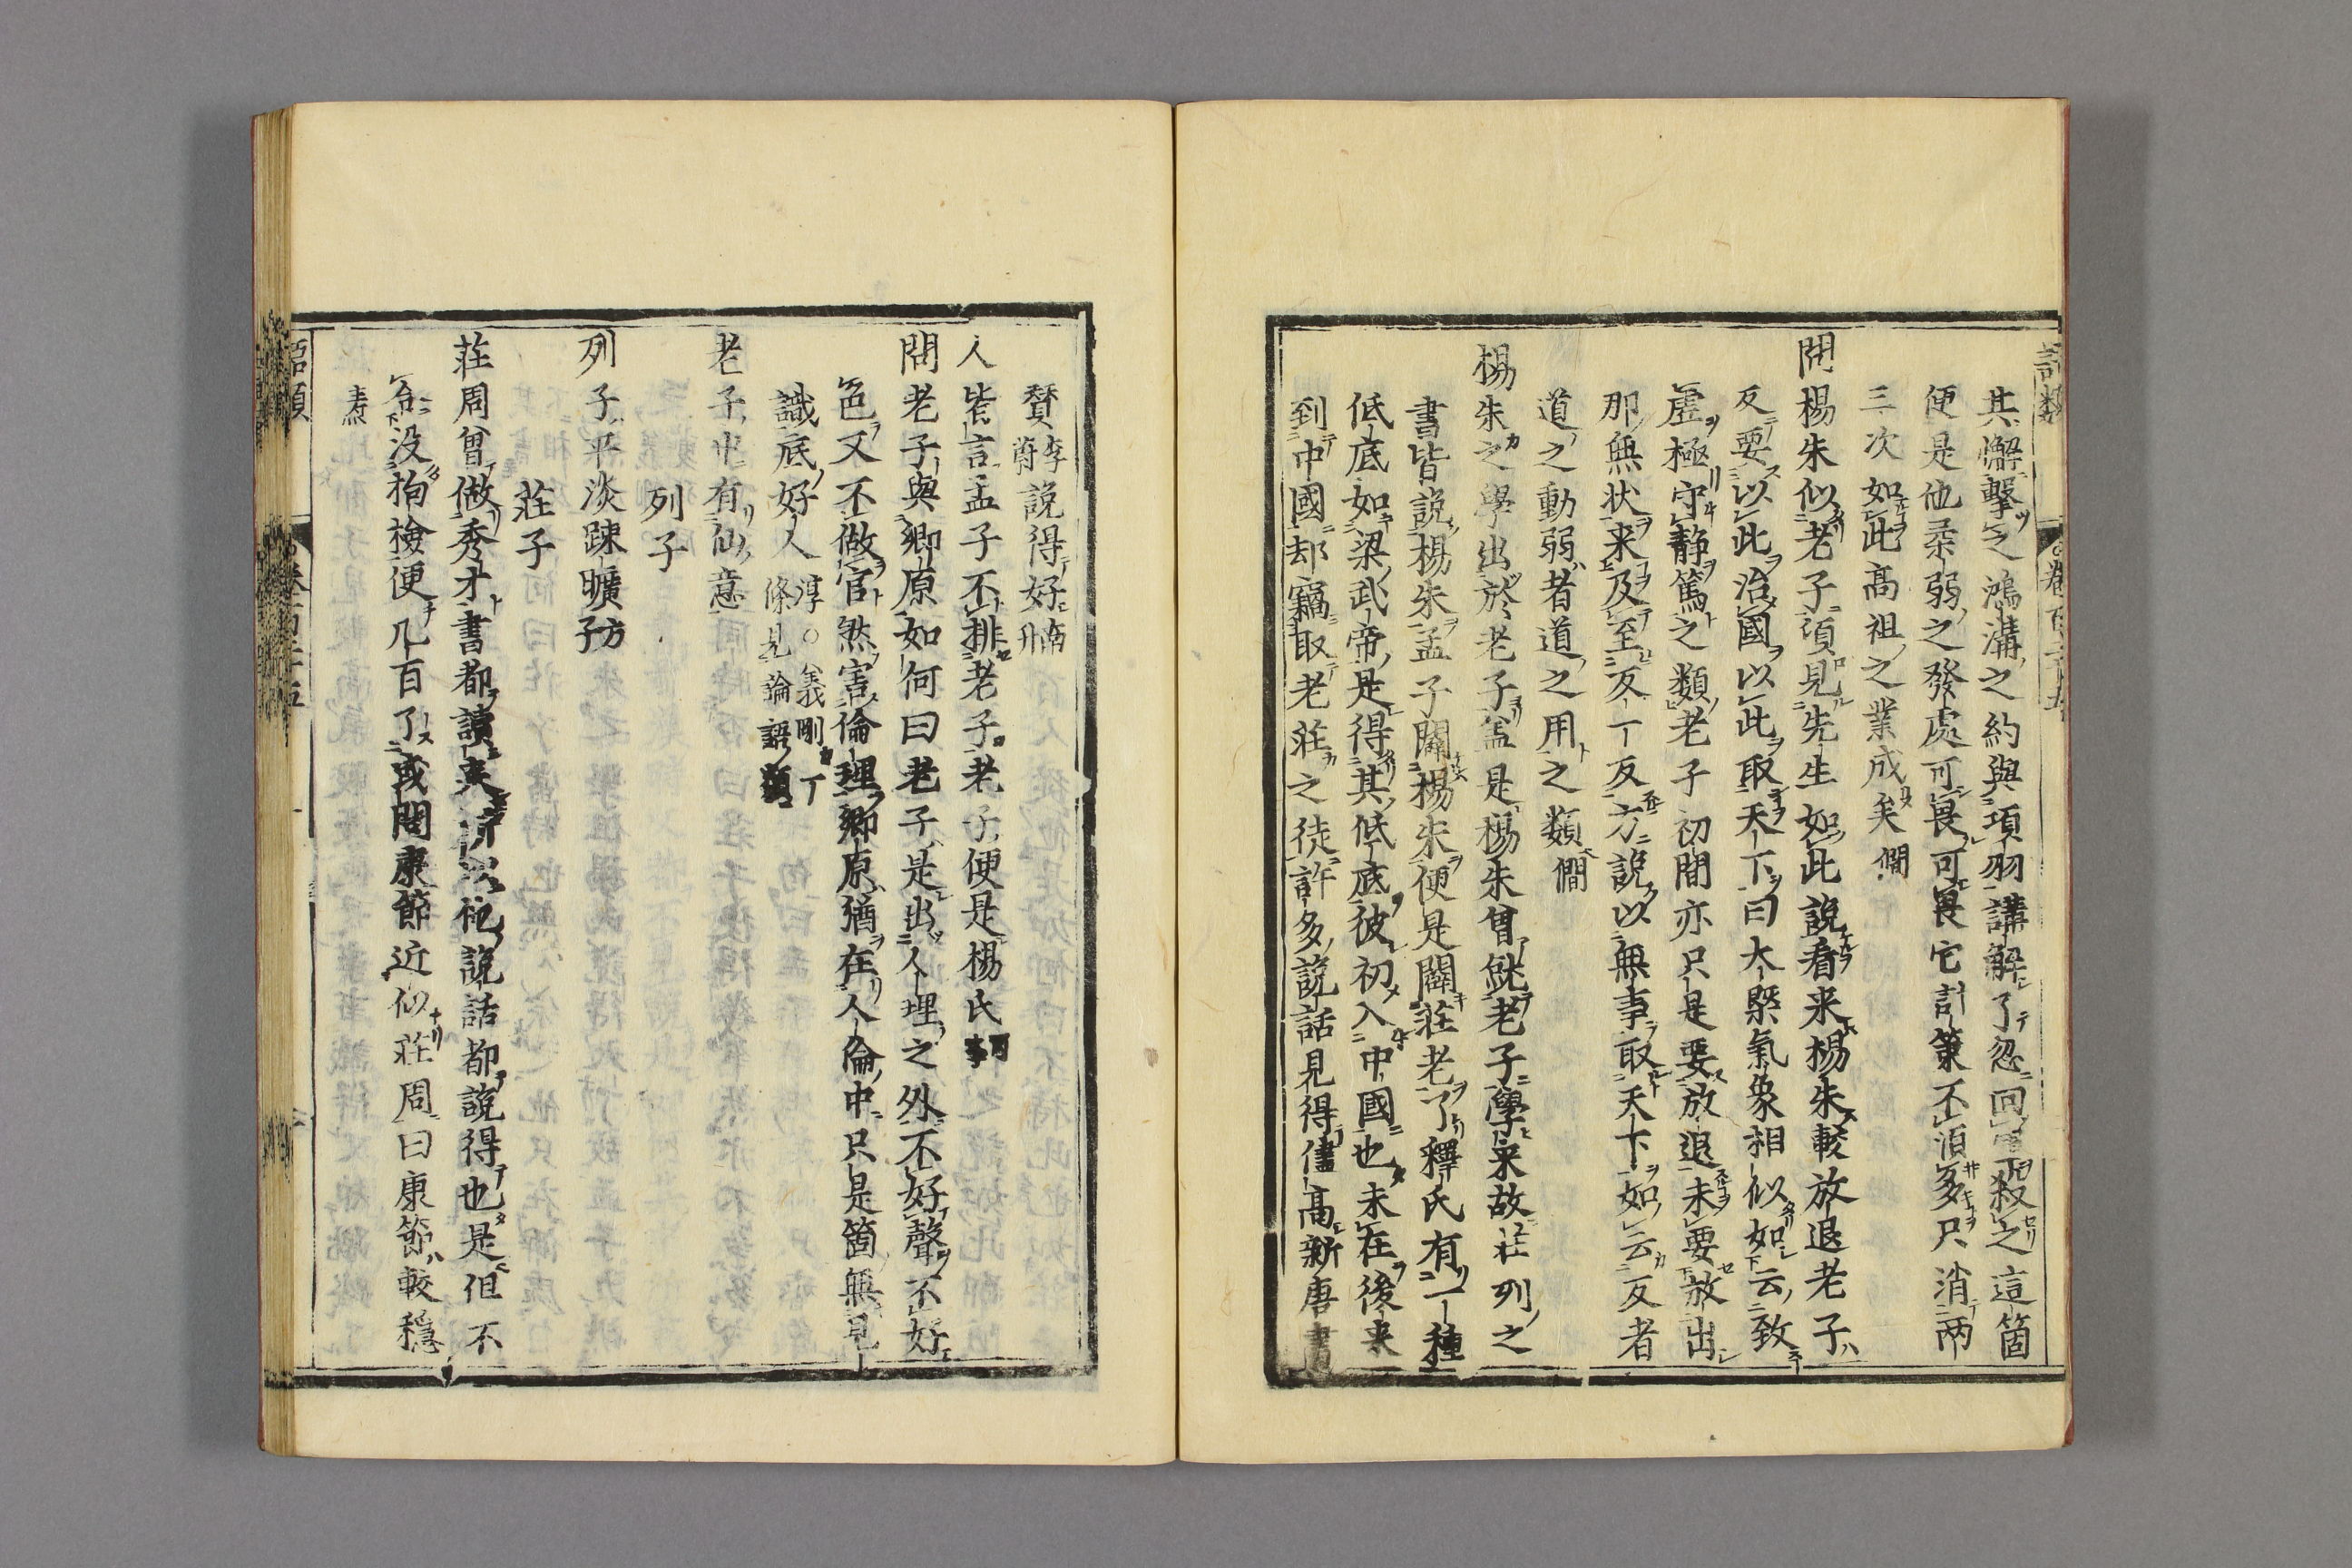 其懈擊之鴻溝之約與項羽講解了忽回軍殺之這箇
便是他柔弱之發處可畏可畏它計策不須多只消兩
三次如此高祖之業成矣僩
問楊朱似老子項見先生如此說看来楊朱較放退老子
反要以此治國以此取天下曰大槩氣象相似如云致
虛極守静篤之類老子初間亦只是要放退未要放出
那無状来及至反一反方說以無事取天下如云反者
道之動弱者道之用之類僩
楊朱之學出於老子盖是楊朱曾就老子學来故莊列之
書皆說楊朱孟子闢楊朱便是闢莊老了釋氏有一種
低底如梁武帝是得其低底彼初入中國也未在後来
到中國却竊取老莊之徒許多說話見得儘高新唐書
賛李蔚說得好南升
人皆言孟子不排老子老子便是楊氏
問老子與郷原如何曰老子是出人理之外不好聲不好
色又不做官然害倫理郷原猶在人倫中只是箇無見
識底好人淳○義剛
條見論語類
老子中有仙意
列子
列子平淡踈曠方子
莊子
莊周曾做秀才書都讀来所以他說話都說得也是但不
合没拘檢便凡百了或問康節近似莊周曰康節較穩
燾